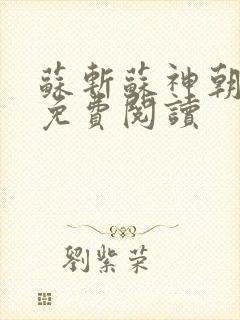 蘇斬蘇神朝
免費閱讀
劉紫荣